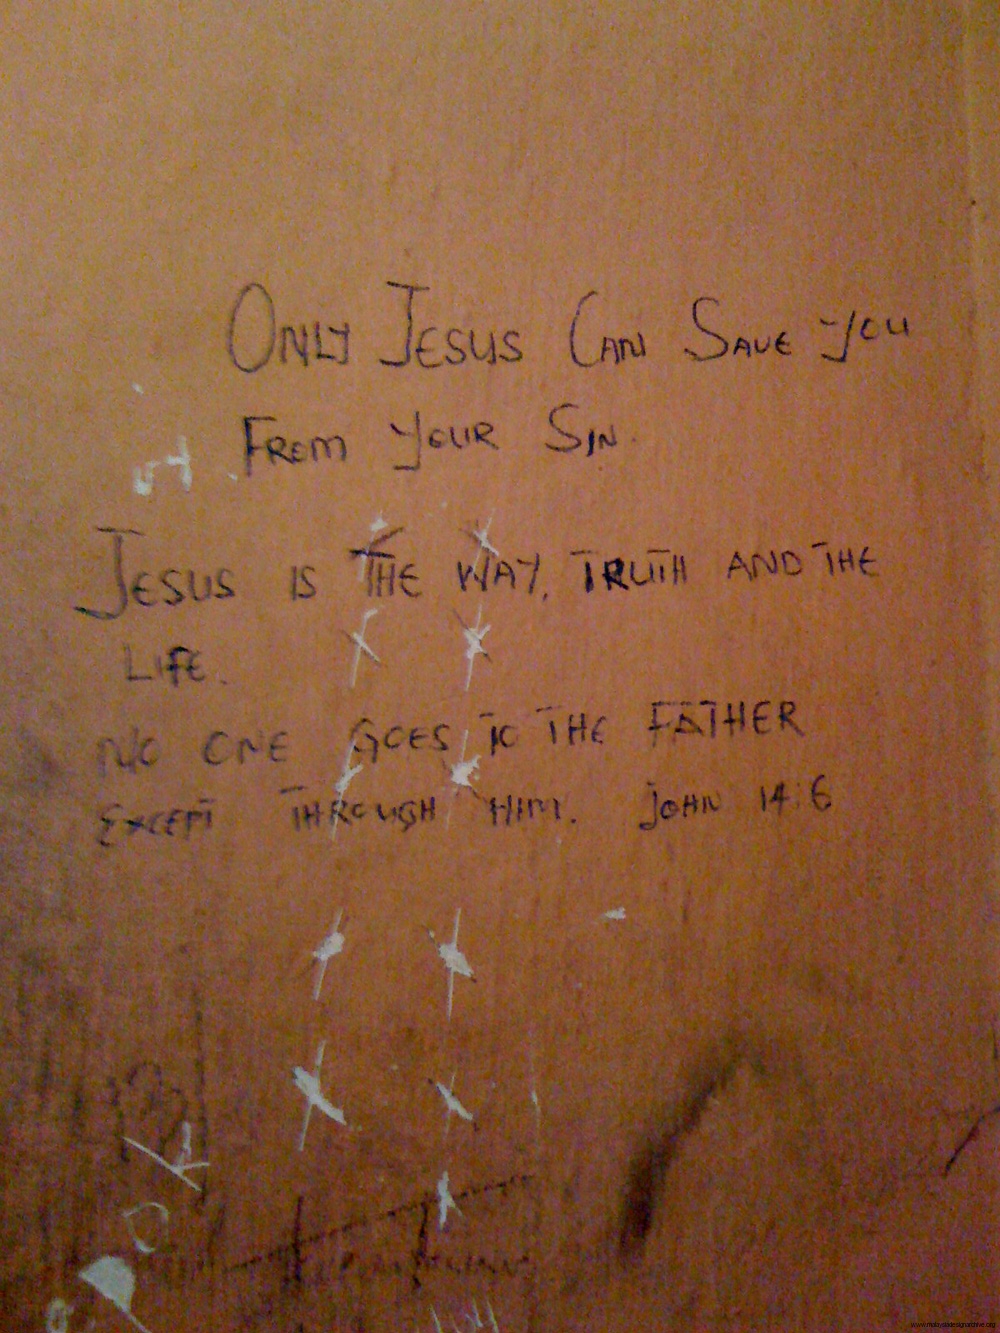 ONLY JESUS CAN SAVE YOU
FROM YOUR SIN.
JESUS IS THE WAY, TRUTH AND THE
LIFE.
NO ONE GOES TO THE FATHER
EXCEPT THROUGH HIM. JOHN 14:6
www.malaysiadesignarchive.org